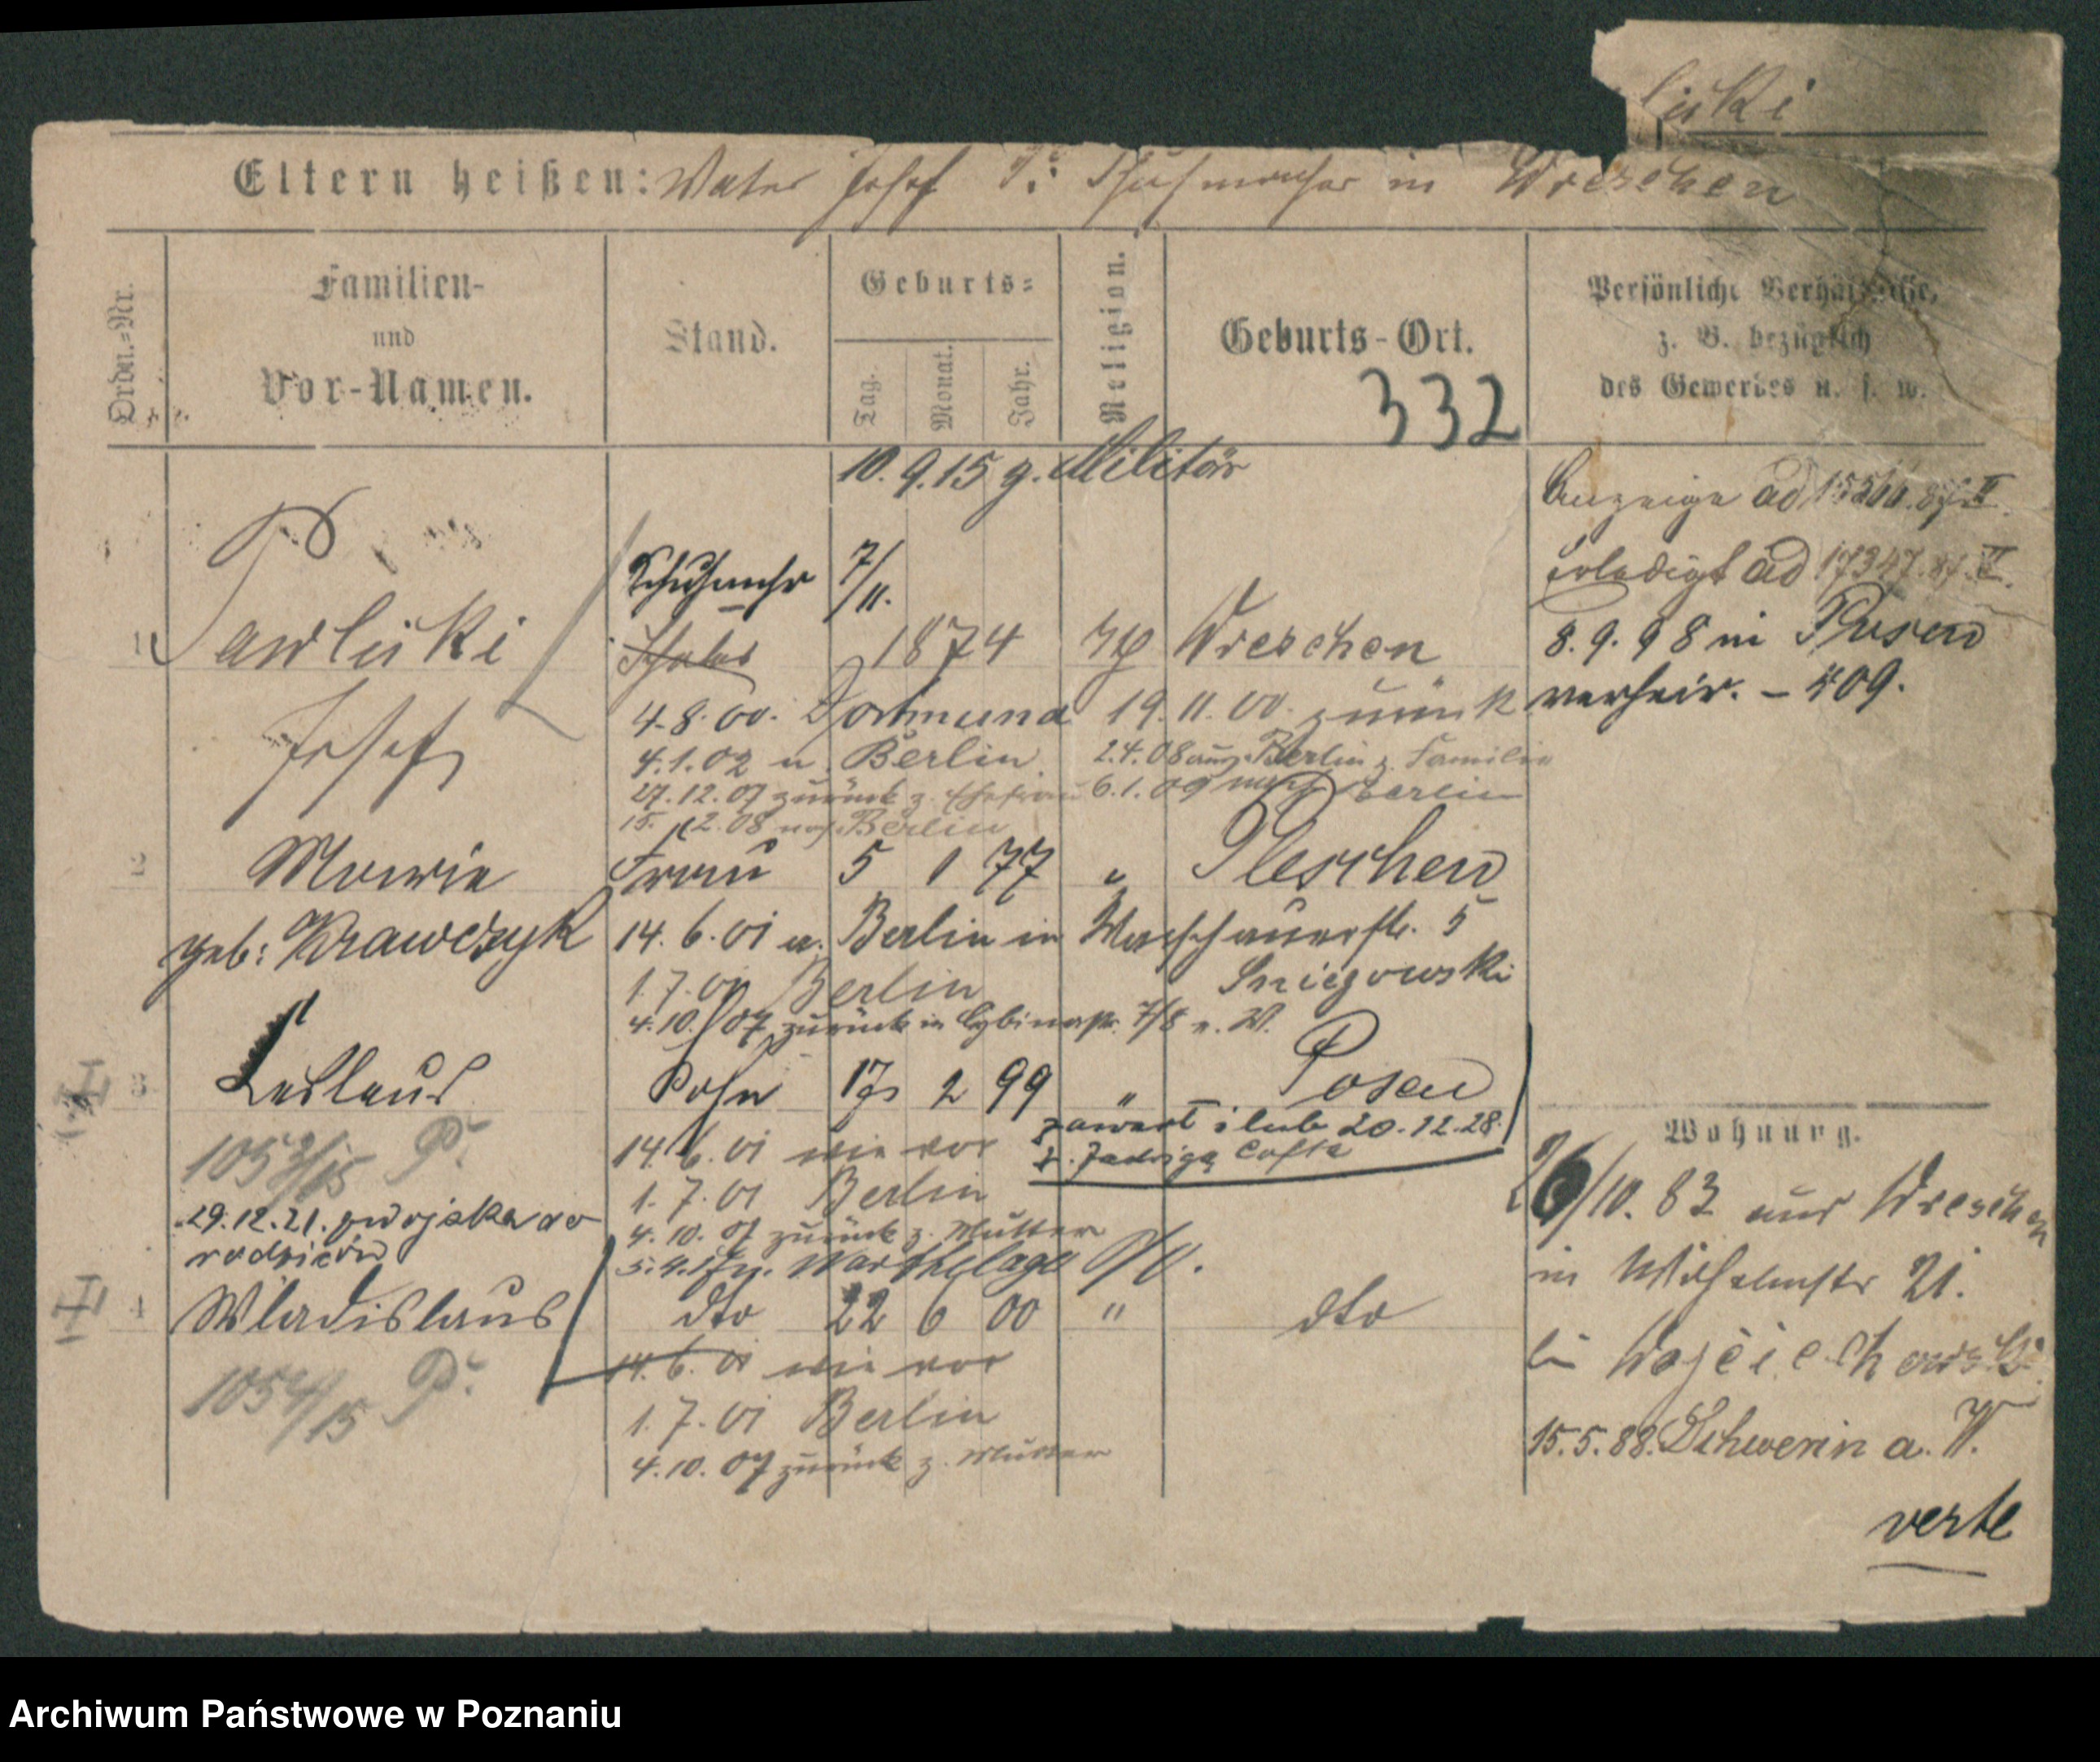 licki
Eltern heißen: Vater Josef P. Schuhmacher in Wreschen
Ordn.-Nr.
Familien-
und
Vor-Namen.
Stand.
Geburts-
Tag.
Monat.
Jahr.
Religion.
Geburts-Ort.
Persönliche Verhältnisse,
z. B. bezüglich
des Gewerbes u. s. w.
332
10. 9. 15 z. Militär
Anzeige ad
erledigt ad
8. 9. 98 in Posen
verheir. – 409.
1
Pawlicki
Josef
Schuhmchr
7/11.
1874
Wreschen
4. 8. 00. Dortmund 19. 11. 00. zurück
4. 1. 02 n. Berlin. 2. 4. 08 aus Berlin z. Familie
27. 12. 07 zurück z. Ehefrau 6. 1. 09 nach Berlin
15. 12. 08 nach Berlin
2
Marie
geb: Krawczyk
Frau 5 1 77 " Pleschen
14. 6. 01 a. Berlin in Warschauerstr. 5
Sniegowski
1. 7. 01 Berlin
4. 10. 07 zurück in Cybinastr. 7/8 n. W.
3
Leslaus
Sohn 17 2 99 " Posen
zawarł ślub 20. 12. 28.
z. Jadwigą
1053/15 P.
14. 6. 01 wie vor
1. 7. 01 Berlin
29. 12. 21. z wojska do
rodziców
4. 10. 07 zurück z. Mutter
Warthelager
4
Wladislaus
dto 22 6 00 " dto
1054/15 P.
14. 6. 01 wie vor
1. 7. 01 Berlin
4. 10. 07 zurück z. Mutter
Wohnung.
26/10. 83 aus Wreschen
in Wilhelmstr 21.
bei Wojciechowski
15. 5. 88. Schwerin a. W.
verte
Archiwum Państwowe w Poznaniu